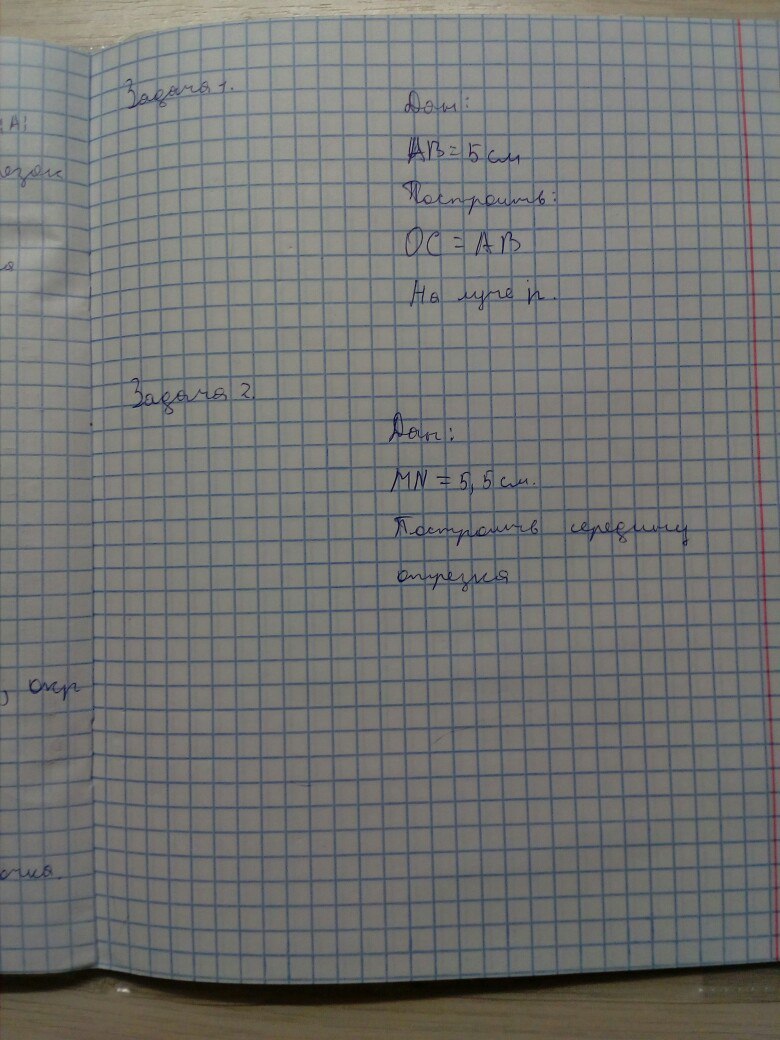 Задача 1.
Дан:
AB = 5 см
Построить:
OC = AB
На луче h.
Задача 2.
Дан:
MN = 5,5 см.
Построить середину
отрезка
A;
езок
а
, окр
очка.